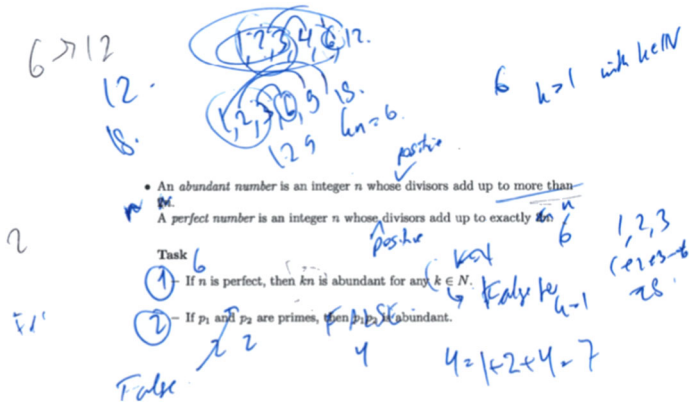 6 > 12
1, 2, 3, 4, 6, 12.
12.
1, 2, 3, 6, 9, 18.
18.
kn = 6.
1 2 9
6 k>1 with k∈N
positive
• An abundant number is an integer n whose divisors add up to more than
n
A perfect number is an integer n whose divisors add up to exactly
n
positive
6
1, 2, 3
2
Task
6
1 – If n is perfect, then kn is abundant for any k ∈ N.
False for k=1
28
2 – If p₁ and p₂ are primes, then p₁p₂ is abundant.
FALSE
2 2
4
4 = 1+2+4 = 7
False